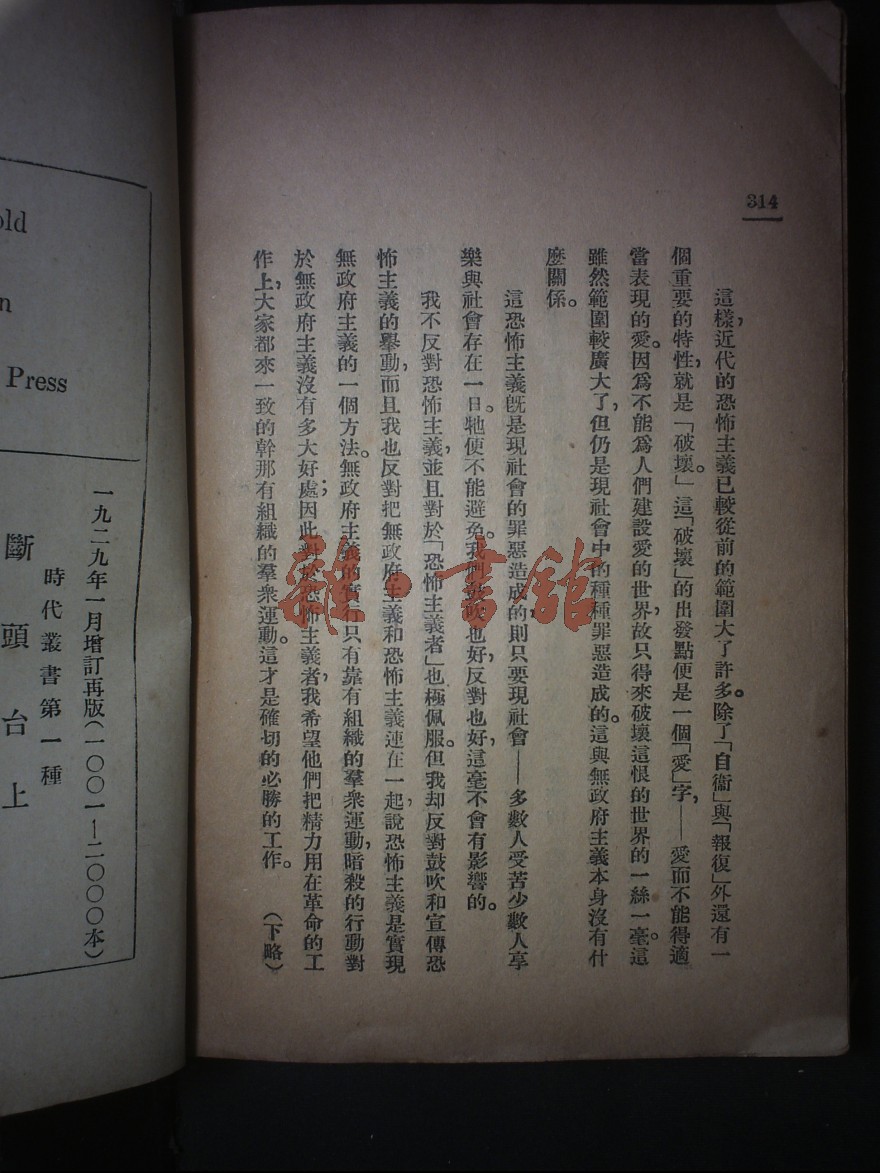 314
這樣，近代的恐怖主義已較從前的範圍大了許多。除了「自衞」與「報復」外還有一
個重要的特性，就是「破壞」。這「破壞」的出發點便是一個「愛」字，——愛而不能得適
當表現的愛。因爲不能爲人們建設愛的世界，故只得來破壞這恨的世界的一絲一毫。這
雖然範圍較廣大了，但仍是現社會中的種種罪惡造成的。這與無政府主義本身沒有什
麽關係。
這恐怖主義旣是現社會的罪惡造成的，則只要現社會——多數人受苦少數人享
樂與社會存在一日。牠便不能避免。我們鼓吹也好，反對也好，這毫不會有影響的。
我不反對恐怖主義，並且對於「恐怖主義者」也極佩服。但我却反對鼓吹和宣傳恐
怖主義的舉動，而且我也反對把無政府主義和恐怖主義連在一起，說恐怖主義是實現
無政府主義的一個方法。無政府主義的實行只有靠有組織的羣衆運動，暗殺的行動對
於無政府主義沒有多大好處；因此對於恐怖主義者，我希望他們把精力用在革命的工
作上，大家都來一致的幹那有組織的羣衆運動。這才是確切的必勝的工作。（下略）
old
n
Press
一九二九年一月增訂再版（一〇〇一—二〇〇〇本）
時代叢書第一種
斷頭台上
雜·書館